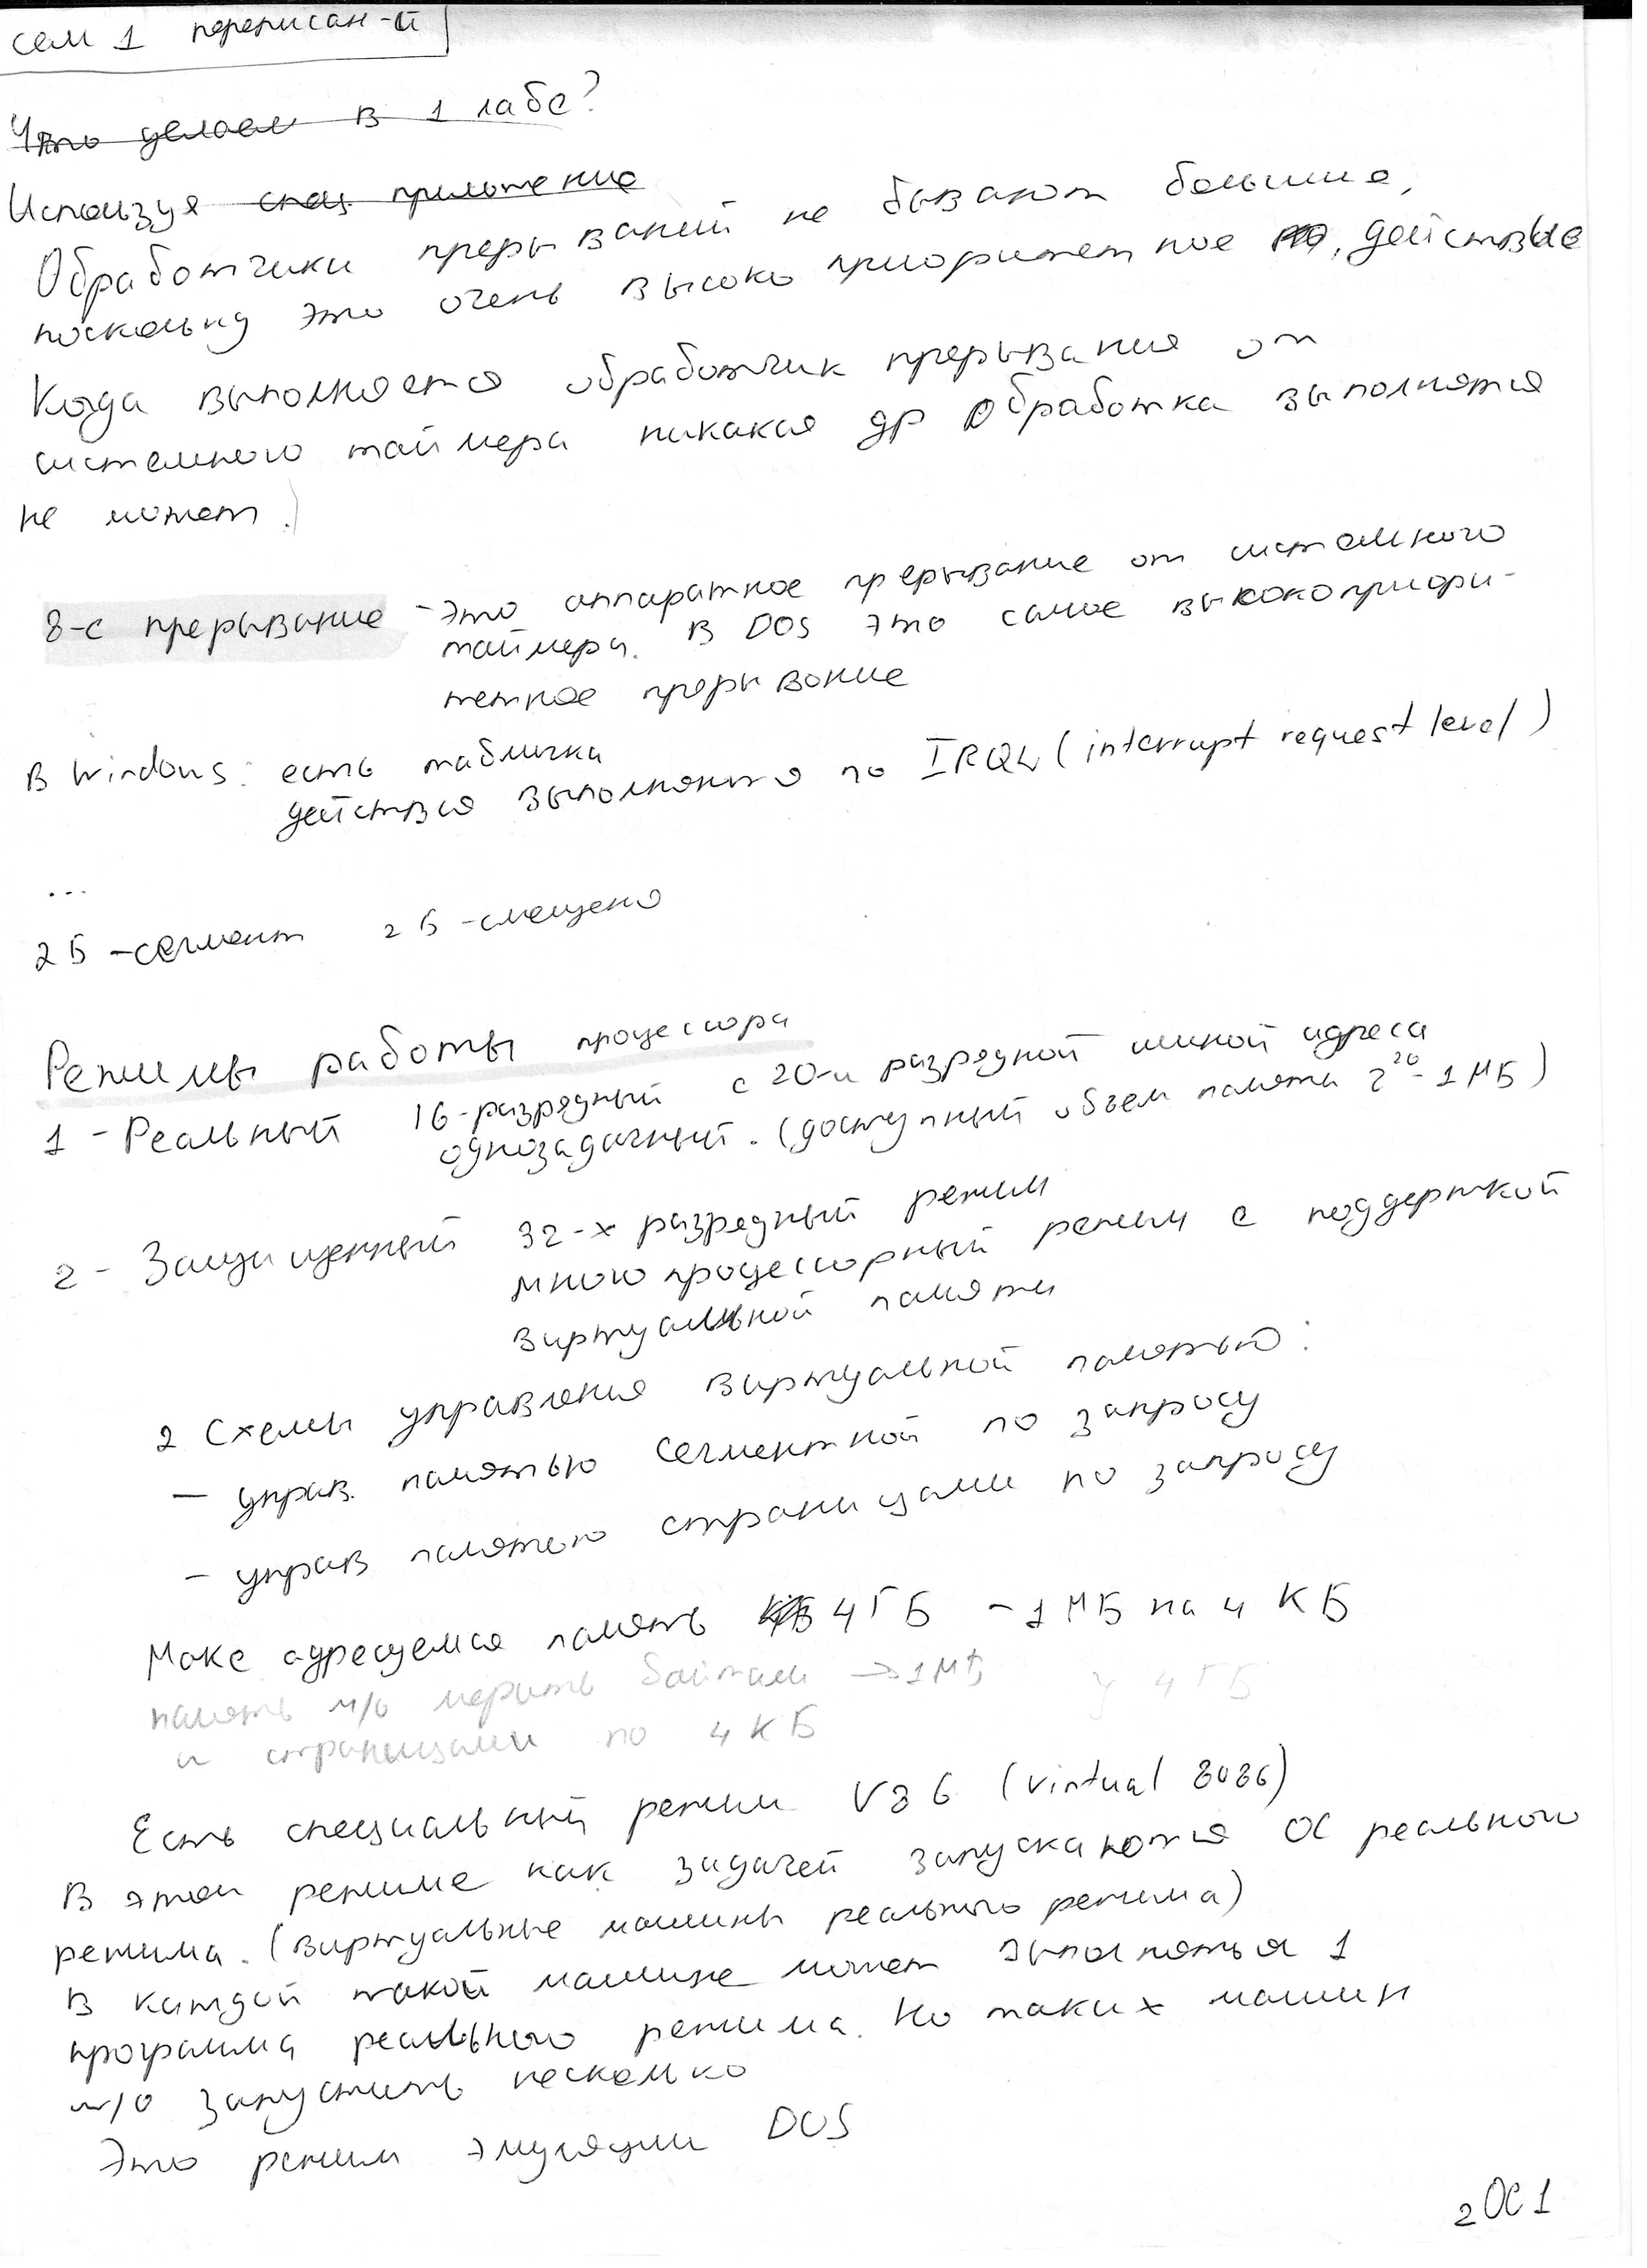 сем 1 переписан-й
Что делаем в 1 лабе?
Используя спец. приложение
Обработчики прерываний не бывают большие,
поскольку это очень высоко приоритетное действие
Когда выполняется обработчик прерывания от
системного таймера никакая др обработка выполнятся
не может.
8-е прерывание - это аппаратное прерывание от системного
таймера. В DOS это самое высокоприори-
тетное прерывание
В Windows: есть табличка
действия выполняются по IRQL (interrupt request level)
...
2Б - сегмент 2Б - смещено
Режимы работы процессора
1 - Реальный 16-разрядный с 20-и разрядной шиной адреса
однозадачный. (доступный объем памяти 2²⁰ - 1 МБ)
2 - Защищенный 32-х разрядный режим
многопроцессорный режим с поддержкой
виртуальной памяти
2 схемы управления виртуальной памятью:
- управ. памятью сегментной по запросу
- управ памятью страницами по запросу
Макс адресуемая память 4ГБ - 1 МБ по 4 КБ
память м/о мерить байтами → 1МБ у 4ГБ
и страницами по 4КБ
Есть специальный режим V86 (virtual 8086)
В этом режиме как задачей запускаются ОС реального
режима. (виртуальные машины реального режима)
В каждой такой машине может выполняться 1
программа реального режима. Но таких машин
м/о запустить несколько
Это режим эмуляции DOS
2 ОС 1